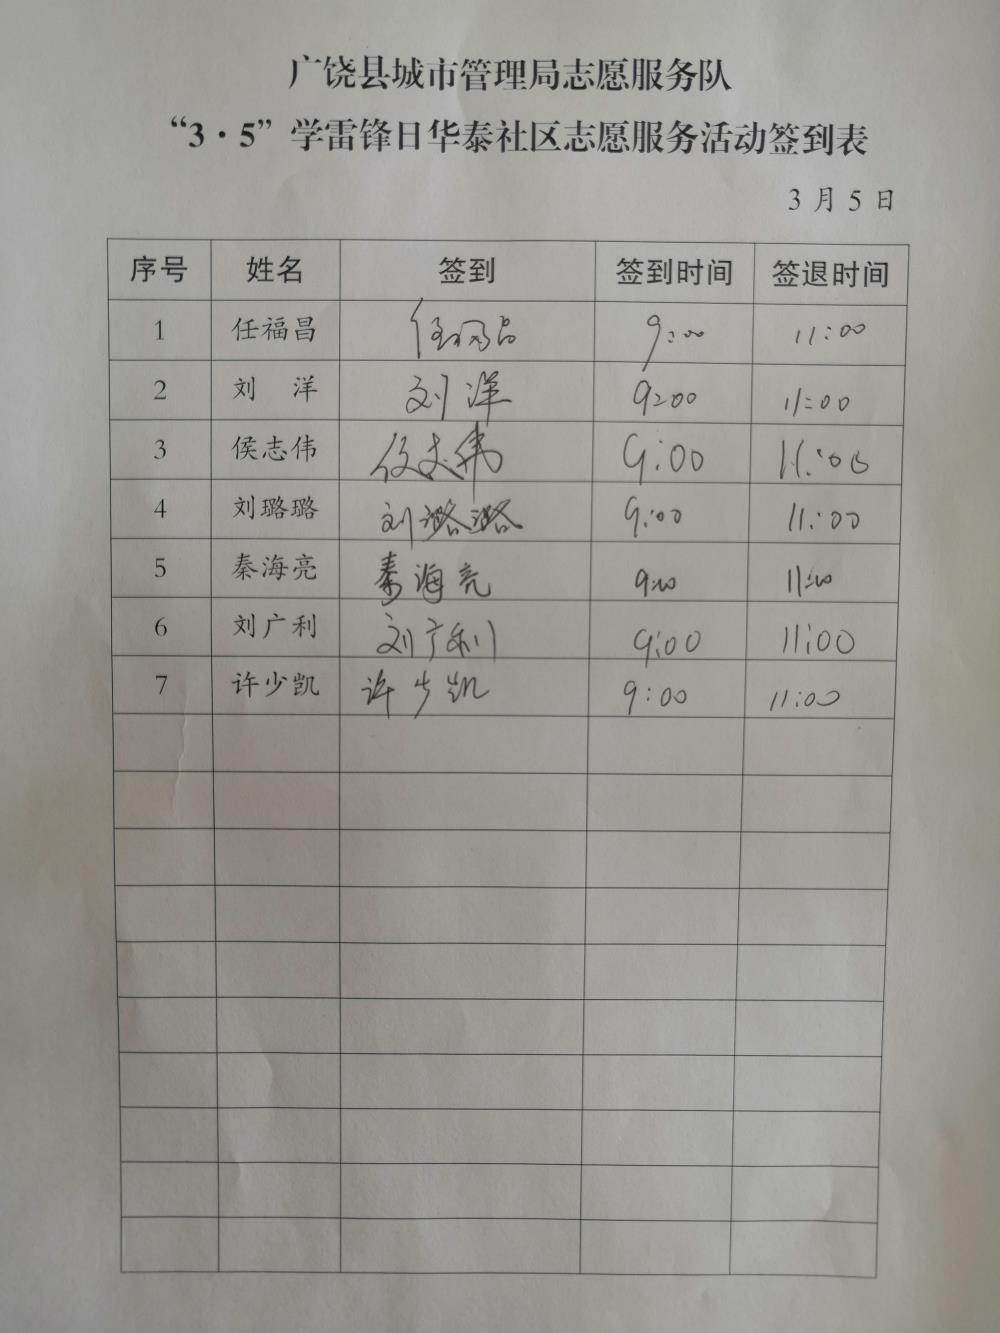 广饶县城市管理局志愿服务队
“3·5”学雷锋日华泰社区志愿服务活动签到表
3月5日
序号 姓名 签到 签到时间 签退时间
1 任福昌 任福昌 9:00 11:00
2 刘 洋 刘洋 9:00 11:00
3 侯志伟 侯志伟 9:00 11:00
4 刘璐璐 刘璐璐 9:00 11:00
5 秦海亮 秦海亮 9:00 11:00
6 刘广利 刘广利 9:00 11:00
7 许少凯 许少凯 9:00 11:00